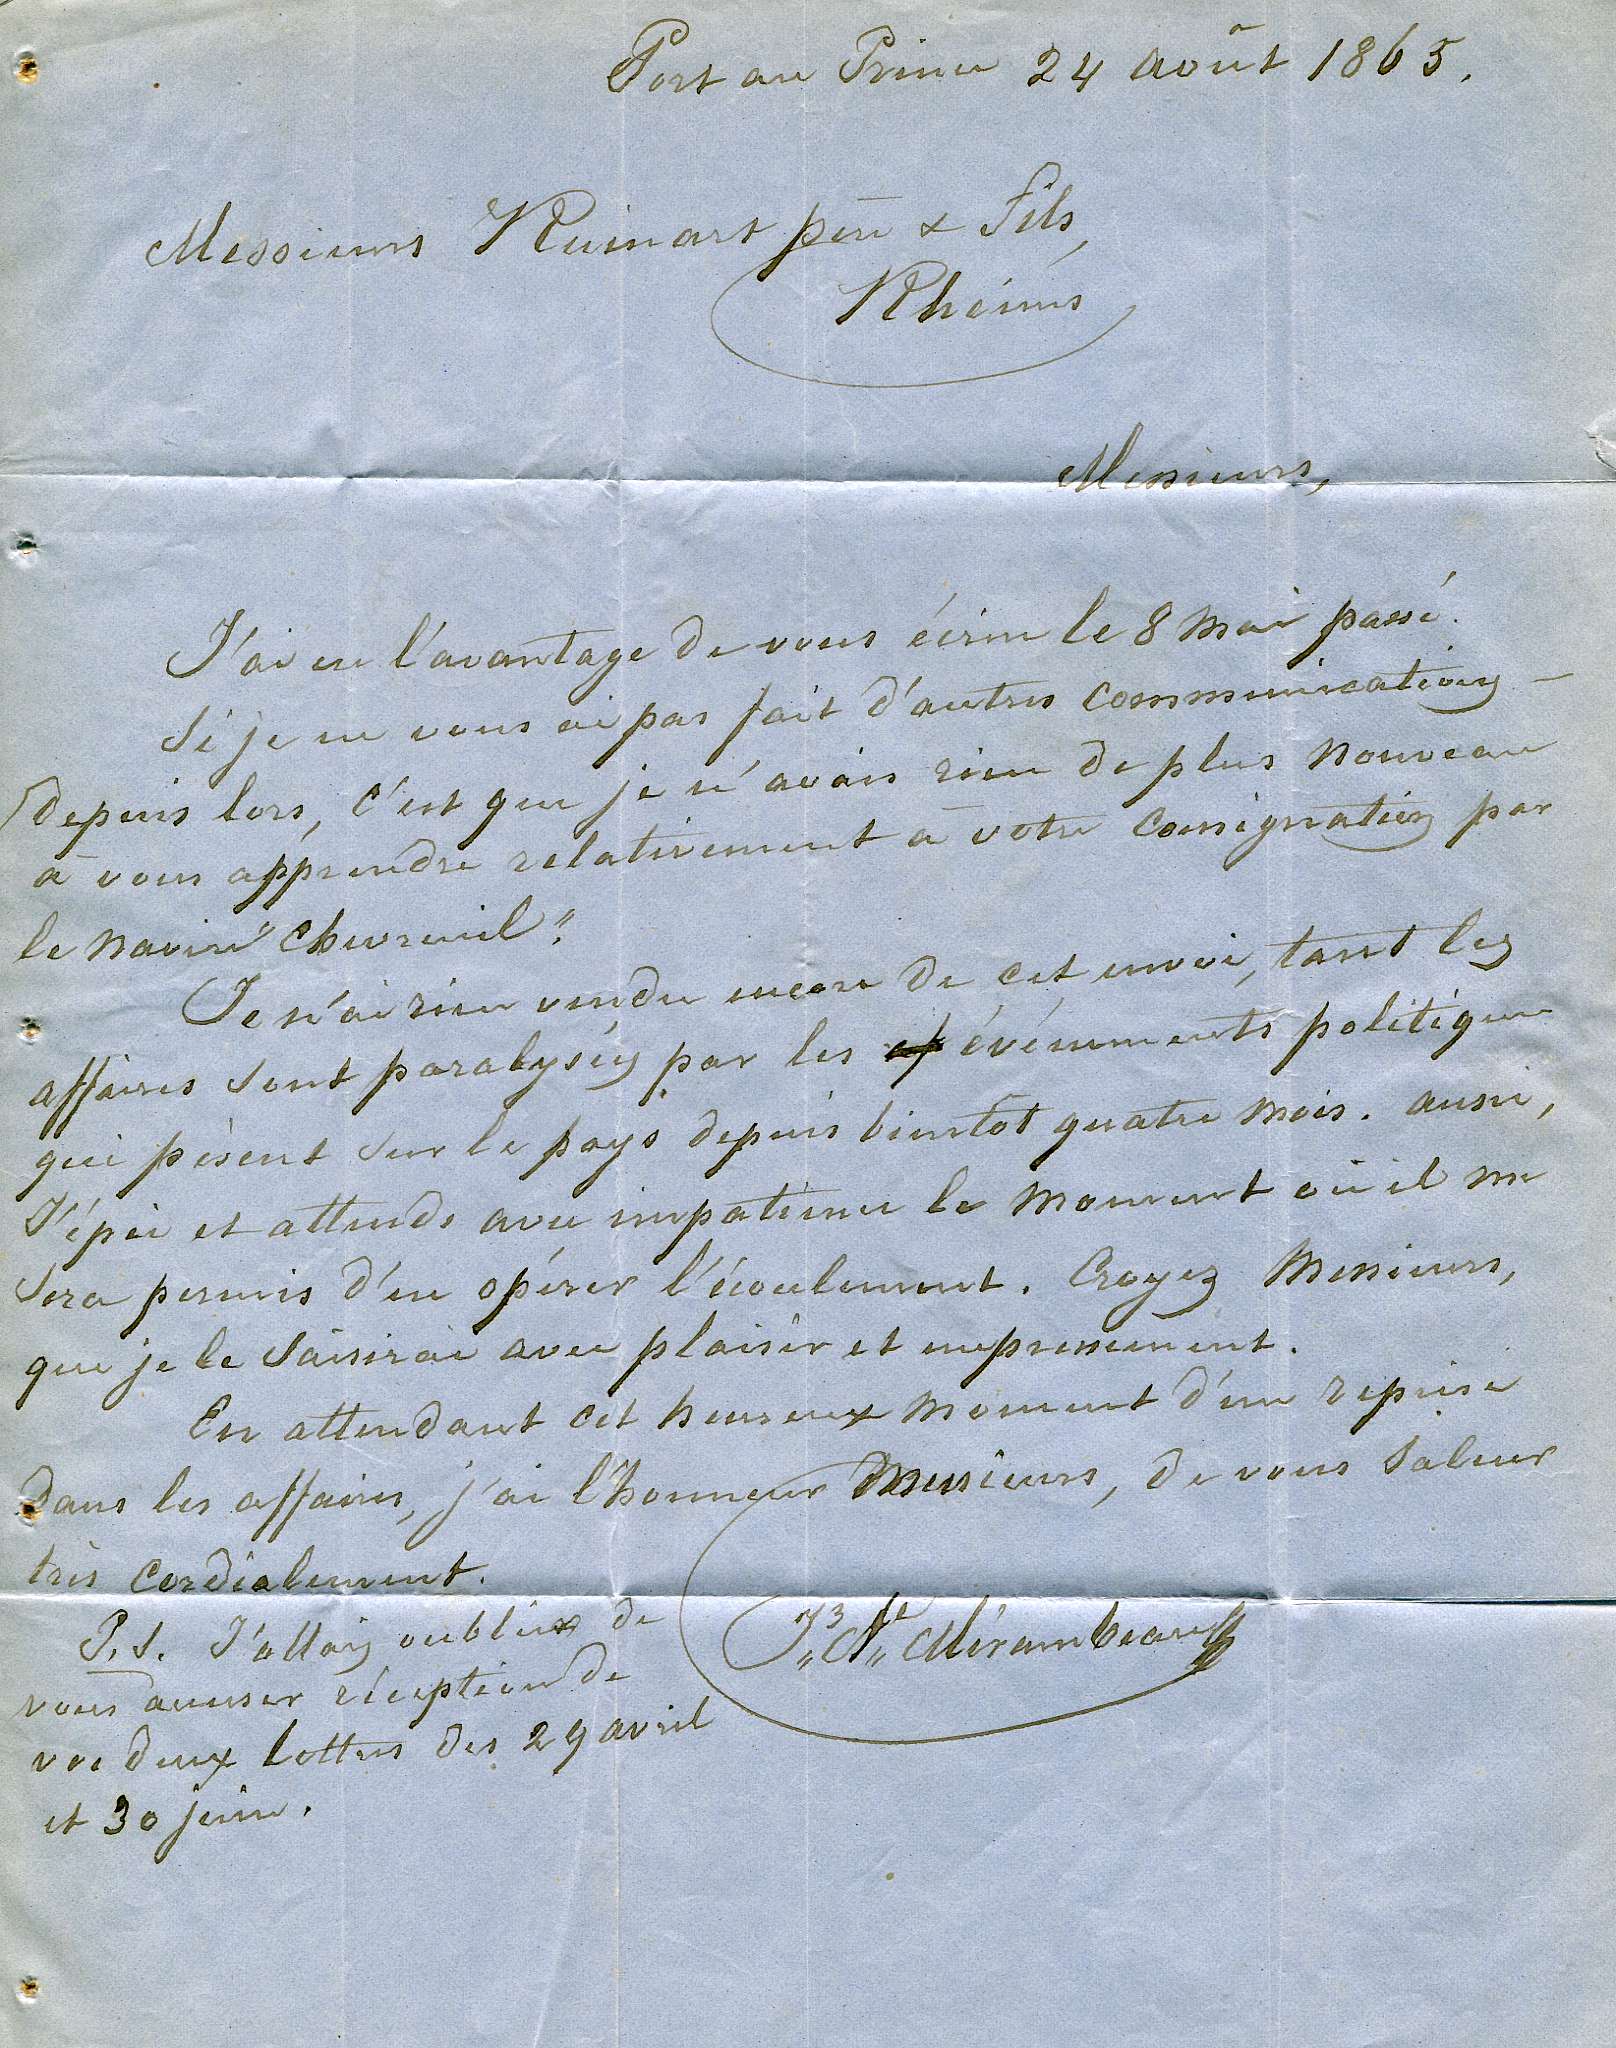 Port au Prince 24 août 1865.
Messieurs Ruinart père & fils,
Rheims
Messieurs,
J'ai eu l'avantage de vous écrire le 8 mai passé.
Si je ne vous ai pas fait d'autres communications
depuis lors, c'est que je n'avais rien de plus nouveau
à vous apprendre relativement à votre consignation par
le navire "Chevreuil".
Je n'ai rien vendu encore de cet envoi, tant les
affaires sont paralysées par les événements politiques
qui pèsent sur le pays depuis bientôt quatre mois. aussi,
J'épie et attends avec impatience le moment où il me
sera permis d'en opérer l'écoulement. Croyez Messieurs,
que je le saisirai avec plaisir et empressement.
En attendant cet heureux moment d'une reprise
dans les affaires, j'ai l'honneur Messieurs, de vous saluer
très cordialement.
Mirambeau
P.S. J'allais oublier de
vous accuser réception de
vos deux lettres des 29 avril
et 30 juin.